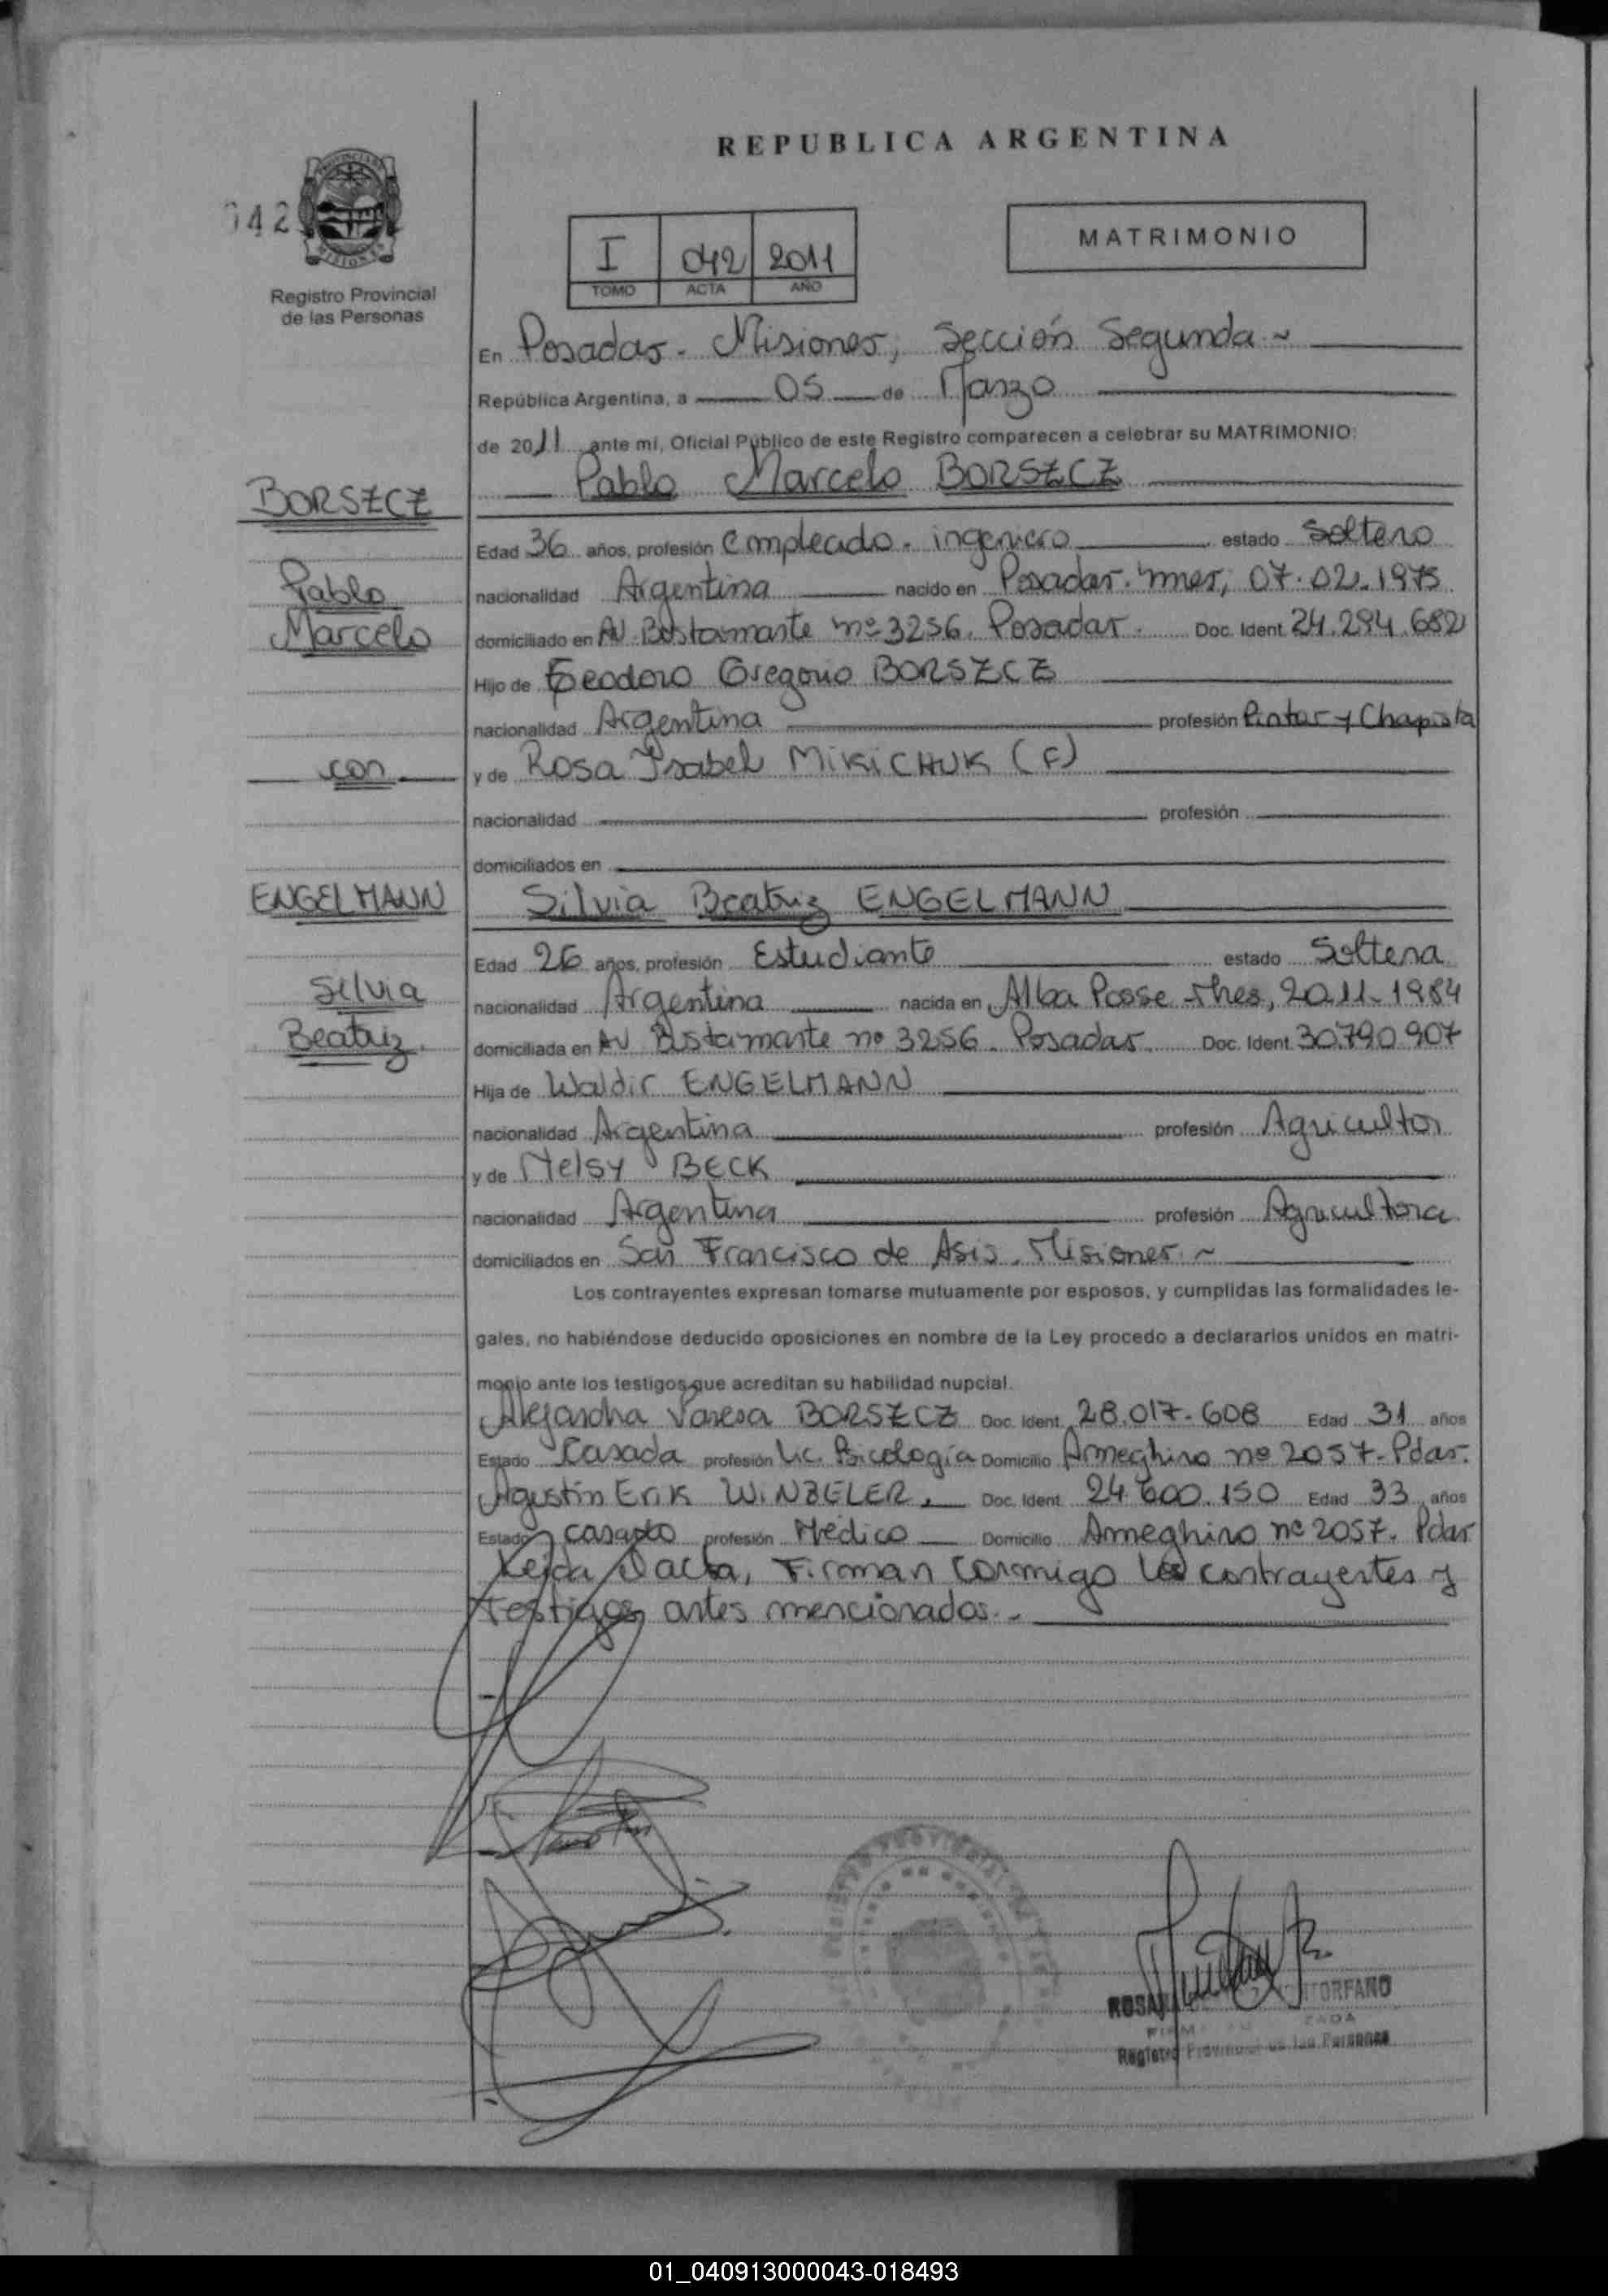 REPUBLICA ARGENTINA
042
Registro Provincial
de las Personas
I 042 2011
TOMO ACTA AÑO
MATRIMONIO
En Posadas - Misiones, Sección Segunda ~
República Argentina, a 05 de Marzo
de 2011 ante mí, Oficial Público de este Registro comparecen a celebrar su MATRIMONIO:
Pablo Marcelo BORSZCZ
BORSZCZ
Edad 36 años, profesión Empleado - ingeniero estado Soltero
Pablo
nacionalidad Argentina nacido en Posadas - mnes, 07.02.1975
Marcelo
domiciliado en AV. Bustamante nº 3256. Posadas. Doc. Ident. 24.294.682
Hijo de Teodoro Gregorio BORSZCZ
nacionalidad Argentina profesión Pintor y Chapista
con
y de Rosa Ysabel MIKICHUK (F)
nacionalidad profesión
domiciliados en
ENGELMANN
Silvia Beatriz ENGELMANN
Edad 26 años, profesión Estudiante estado Soltera
Silvia
nacionalidad Argentina nacida en Alba Posse - Mnes, 20.11.1984
Beatriz.
domiciliada en AV Bustamante nº 3256. Posadas. Doc. Ident. 30.790.907
Hija de Waldir ENGELMANN
nacionalidad Argentina profesión Agricultor
y de Nelsy BECK
nacionalidad Argentina profesión Agricultora
domiciliados en San Francisco de Asis. Misiones. ~
Los contrayentes expresan tomarse mutuamente por esposos, y cumplidas las formalidades le-
gales, no habiéndose deducido oposiciones en nombre de la Ley procedo a declararlos unidos en matri-
monio ante los testigos que acreditan su habilidad nupcial.
Alejandra Vanesa BORSZCZ Doc. Ident. 28.017.608 Edad 31 años
Estado Casada profesión Lic. Psicología Domicilio Ameghino nº 2057 - Pdas.
Agustín Erik WINZELER. Doc. Ident. 24.600.150 Edad 33 años
Estado casado profesión Médico Domicilio Ameghino nº 2057. Pdas
Leida el acta, Firman conmigo los contrayentes y
testigos antes mencionados. -
TORFANO
Registro Provincial de las Personas
01_040913000043-018493